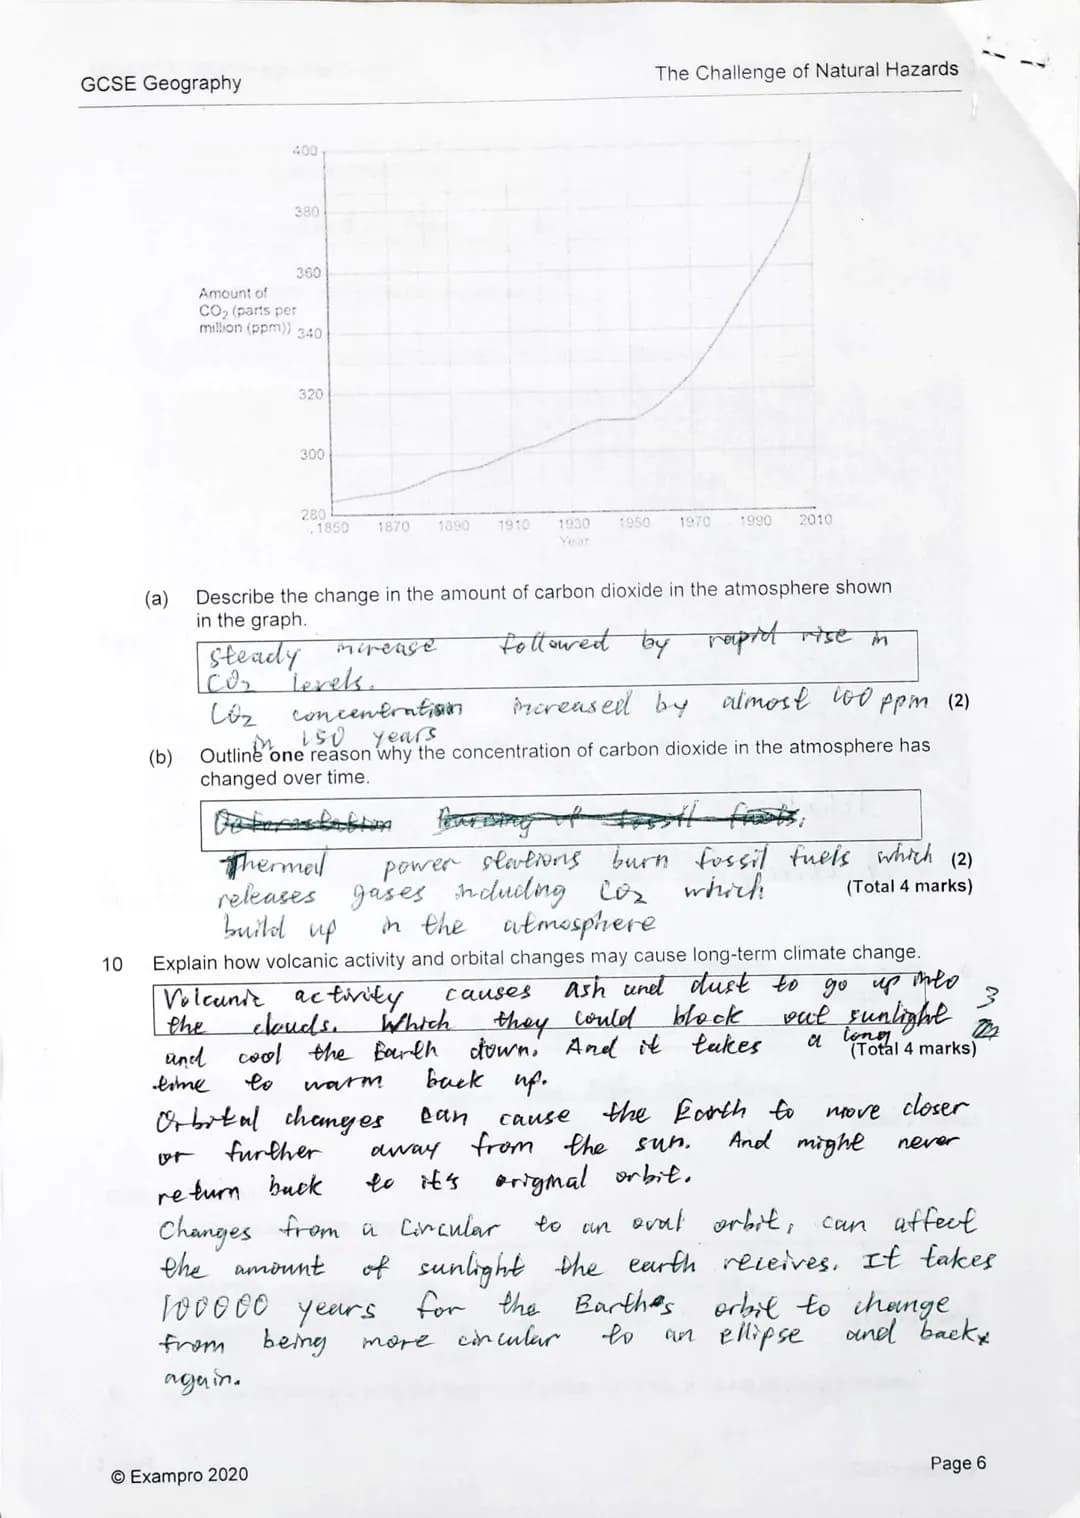 GCSE Geography
The Challenge of Natural Hazards
400
380
360
Amount of
CO₂ (parts per
million (ppm))
340
320
300
280
1850 1870 1890 1910 1930 1950 1970 1990 2010
Year
(a) Describe the change in the amount of carbon dioxide in the atmosphere shown
in the graph.
steady increase followed by rapid rise in
CO₂ levels.
CO₂ concentration increased by almost 100 ppm (2)
in 150 years
(b) Outline one reason why the concentration of carbon dioxide in the atmosphere has
changed over time.
burning of fossil
Thermal power stations burn fossil fuels which (2)
releases gases including CO₂ which (Total 4 marks)
build up in the atmosphere
10 Explain how volcanic activity and orbital changes may cause long-term climate change.
Volcanic activity causes ash and dust to go up into
the clouds. Which they could block out sunlight 3
and cool the Earth down. And it takes a long
(Total 4 marks)
time to warm back up.
Orbital changes can cause the Earth to move closer
or further away from the sun. And might never
return back to it's original orbit.
Changes from a Circular to an oval orbit, can affect
the amount of sunlight the earth receives. It takes
100000 years for the Earth's orbit to change
from being more circular to an ellipse and back
again.
© Exampro 2020
Page 6